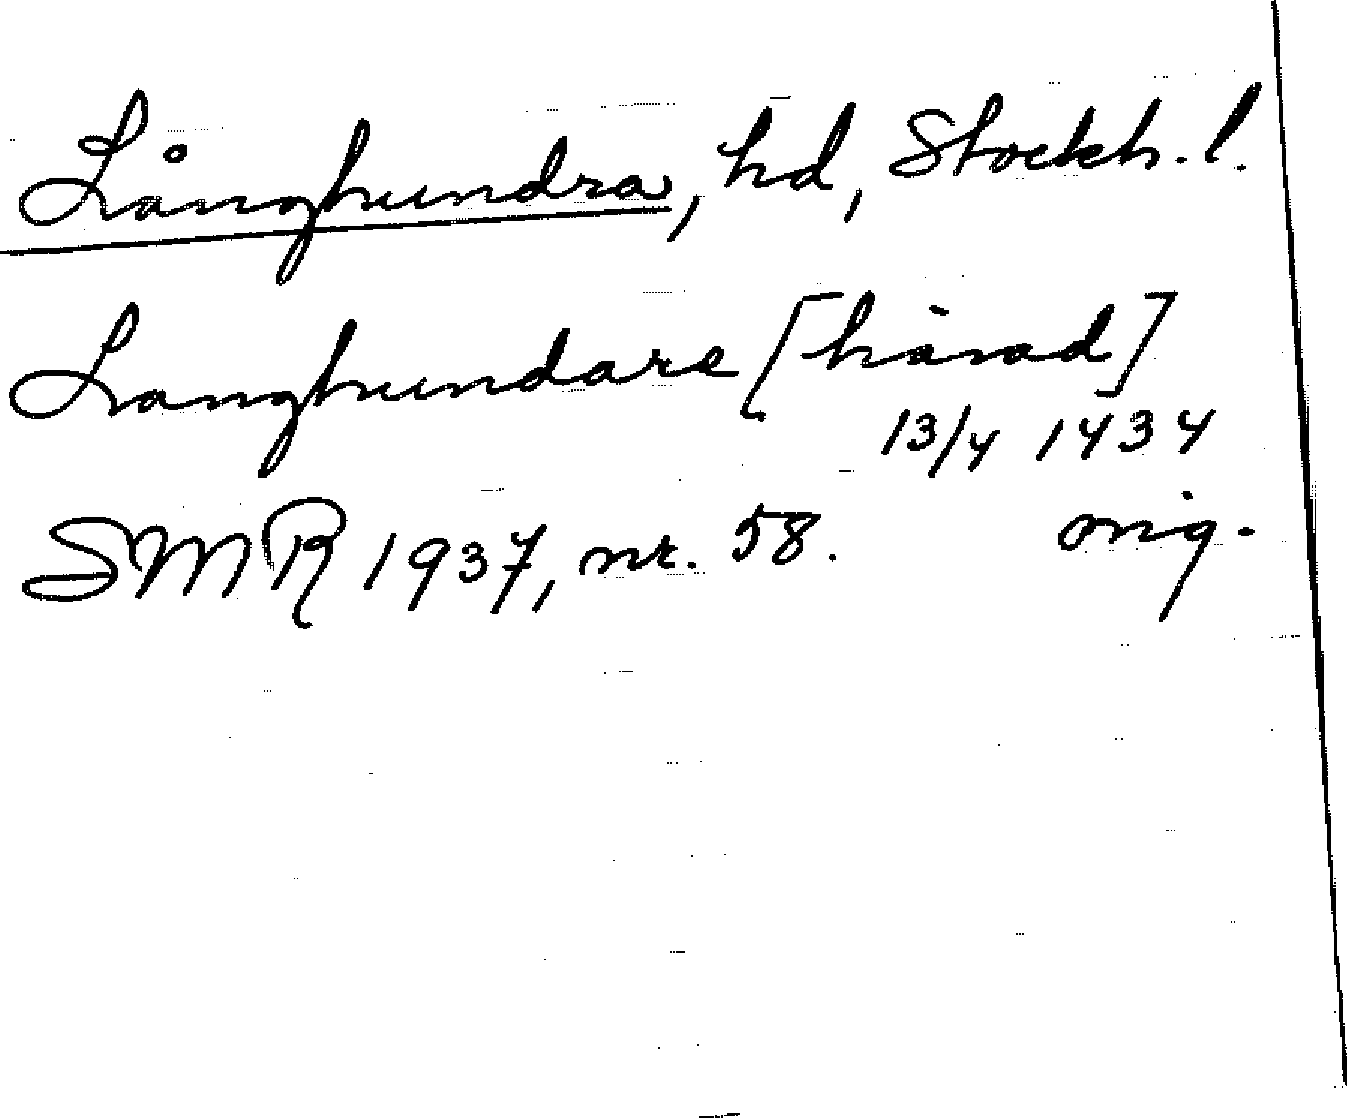 Långhundra, hd, Stockh. l.
Langhundare [härad]
13/4 1434
SMR 1937, nr. 58. orig.